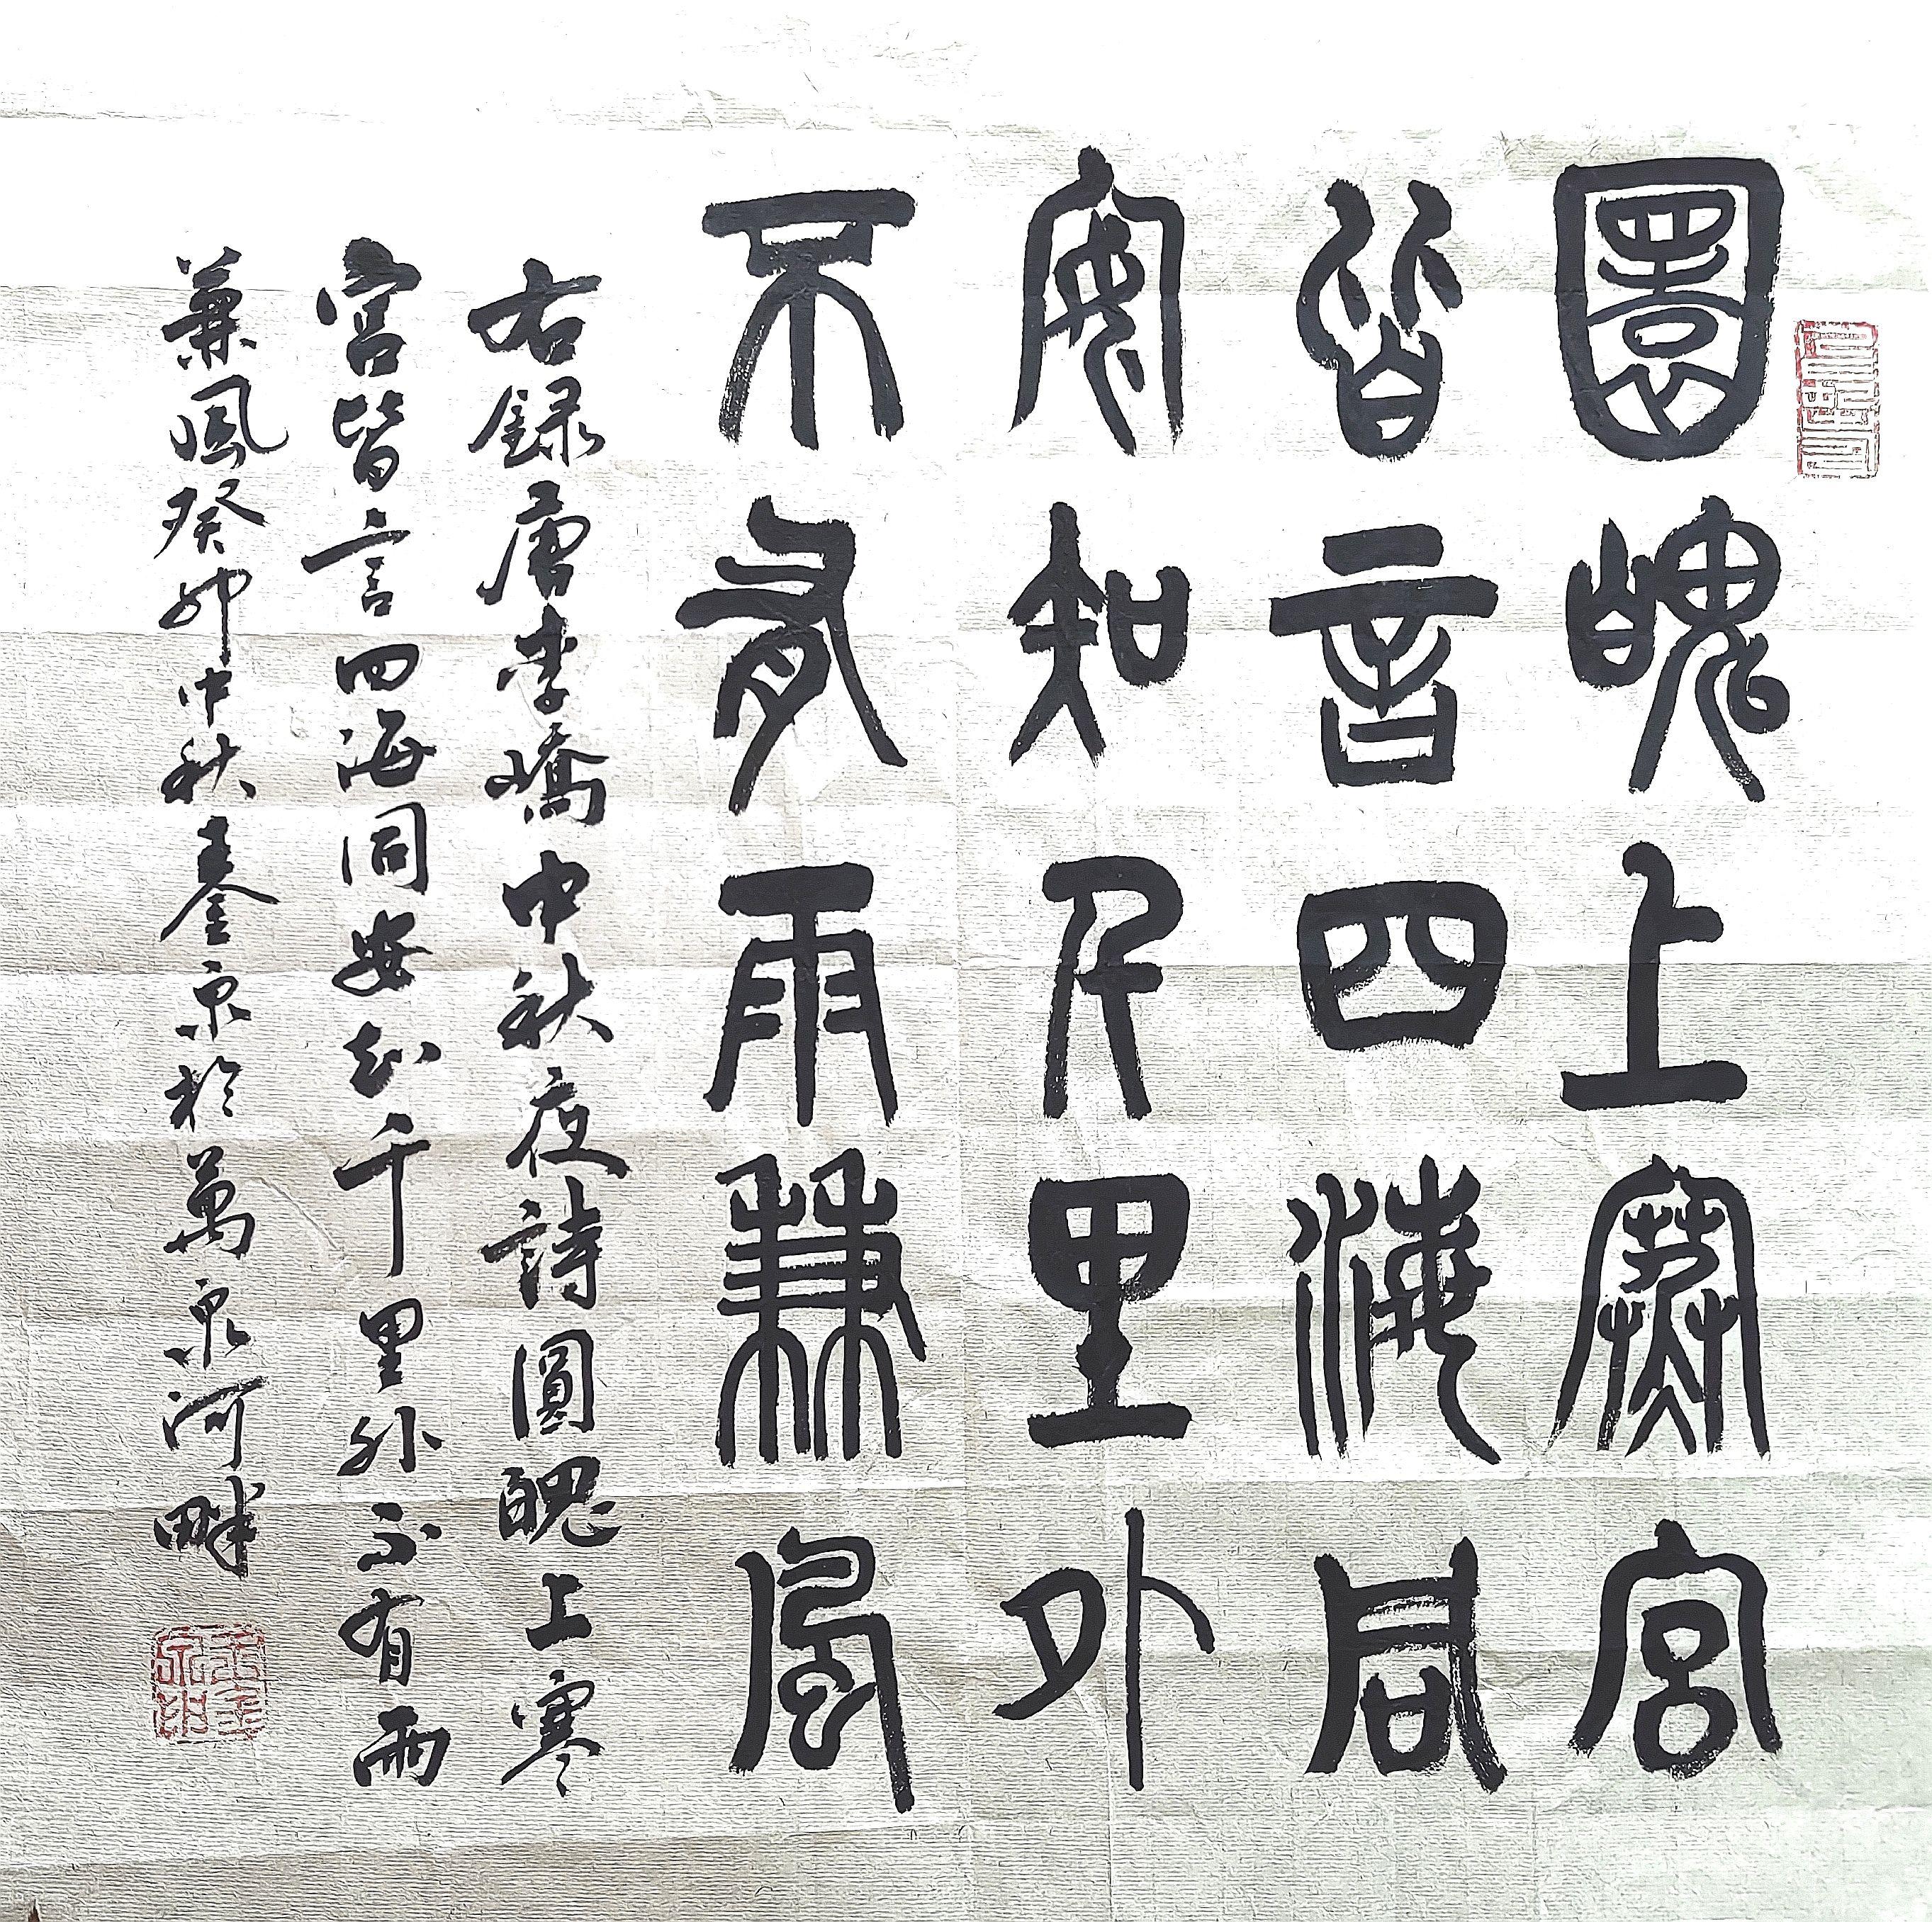 圓魄上寒宮
皆言四海同
安知千里外
不有雨兼風
右録唐李嶠中秋夜詩圓魄上寒
宮皆言四海同安知千里外不有雨
兼風癸卯中秋秦泉於萬泉河畔